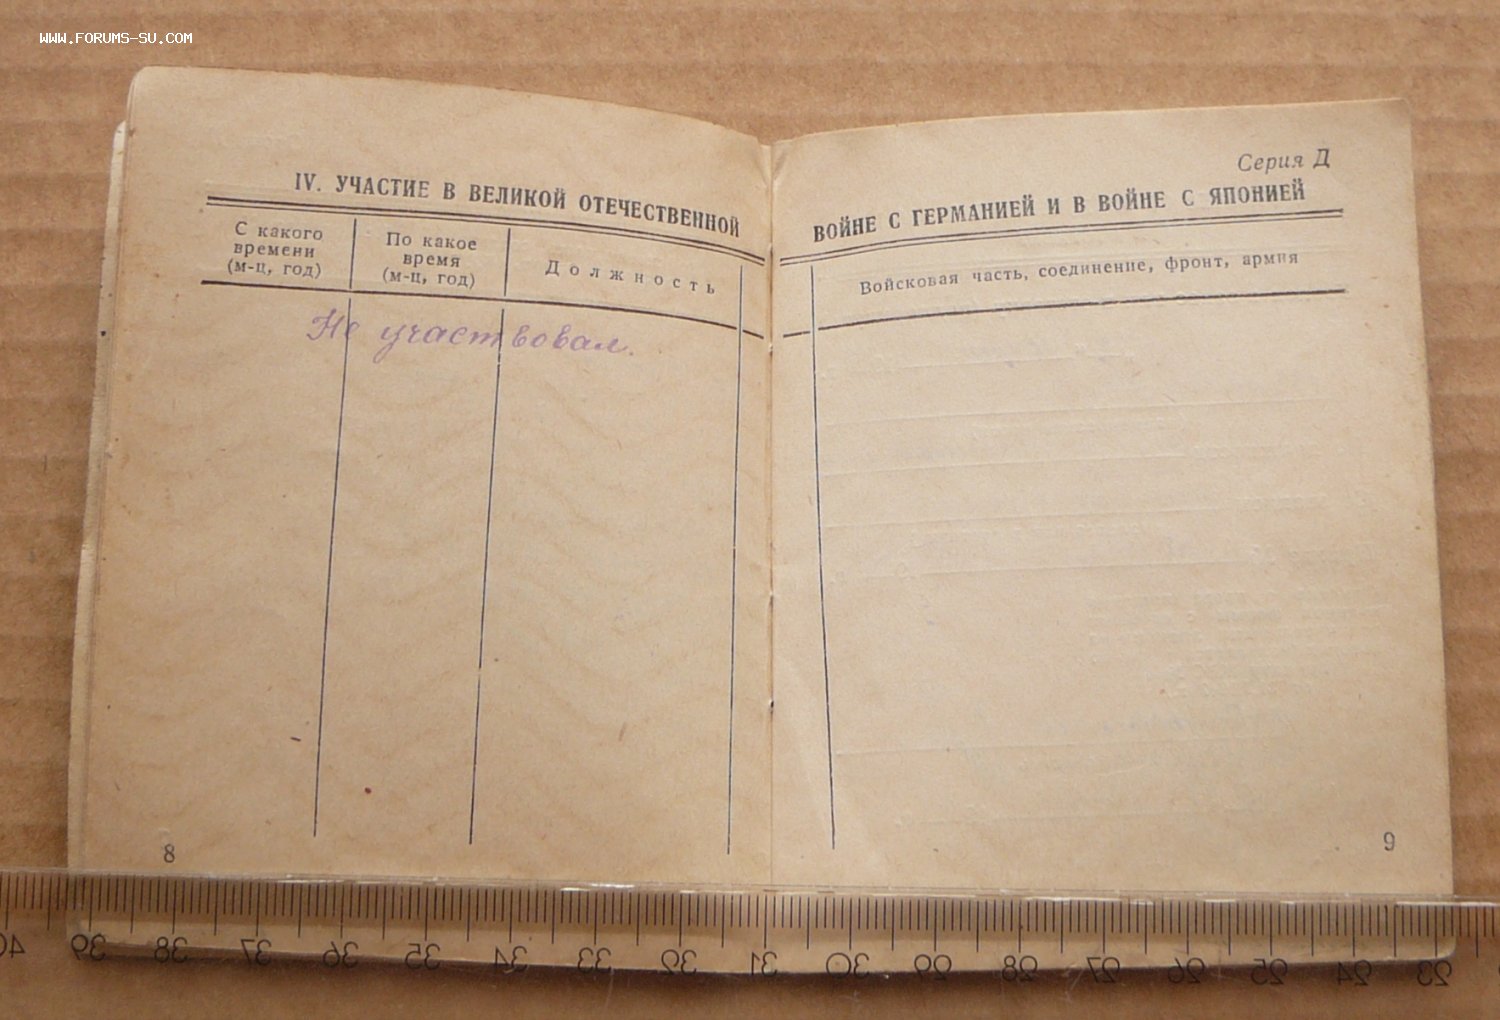 WWW.FORUMS-SU.COM
IV. УЧАСТИЕ В ВЕЛИКОЙ ОТЕЧЕСТВЕННОЙ
С какого
времени
(м-ц, год)
По какое
время
(м-ц, год)
Должность
Не участвовал.
8
Серия Д
ВОЙНЕ С ГЕРМАНИЕЙ И В ВОЙНЕ С ЯПОНИЕЙ
Войсковая часть, соединение, фронт, армия
9
40 39 38 37 36 35 34 33 32 31 30 29 28 27 26 25 24 23